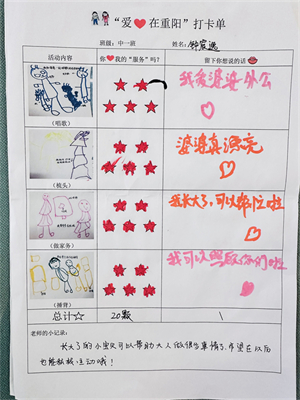 “爱❤在重阳”打卡单
班级：中一班 姓名：
活动内容 你❤我的“服务”吗？ 留下你想说的话
（唱歌）
我爱婆婆外公
（梳头）
婆婆真漂亮
（做家务）
我长大了，可以帮忙啦
（捶背）
我可以照顾你们啦
总计☆ 20颗 \
老师的小记录：
长大了的小宝贝可以帮助大人做很多事情了，希望在以后
也能积极运动哦！